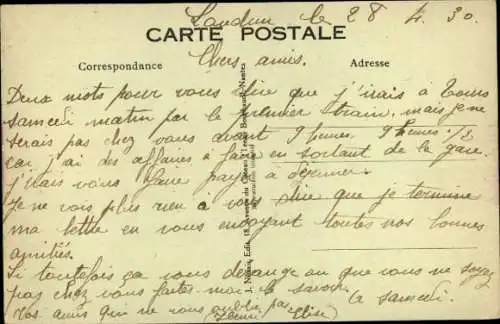 Loudun le 28 4. 30
CARTE POSTALE
Correspondance
Chers amis.
Adresse
Deux mots pour vous dire que j'irais à Tours
samedi matin par le premier train, mais je ne
serais pas chez vous avant 9 heures 9 heures 1/2
car j'ai des affaires à faire en sortant de la gare.
j'irais vous faire payé à déjeuner.
Je ne vous plus rien a vous dire que je termine
ma lettre en vous envoyant toutes nos bonnes
amitiés.
Si toutefois ça vous dérange ou que vous ne soyez
pas chez vous faites moi le savoir
a samedi.
Vos amis qui ne vous oublie pas
Henri Elise